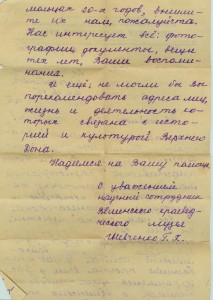 моанцах 20-х годов, вышли-
те их нам, пожалуйста.
Нас интересует всё: фото-
графии, документы, вещи
тех лет, Ваши воспоми-
нания.
И ещё: не могли бы Вы
порекомендовать адреса лиц,
жизнь и деятельность ко-
торых связана с исто-
рией и культурой Верхнего
Дона.
Надеемся на Вашу помощь.
С уважением
научный сотрудник
краевед-
ческого музея
Шевченко Г. Г.